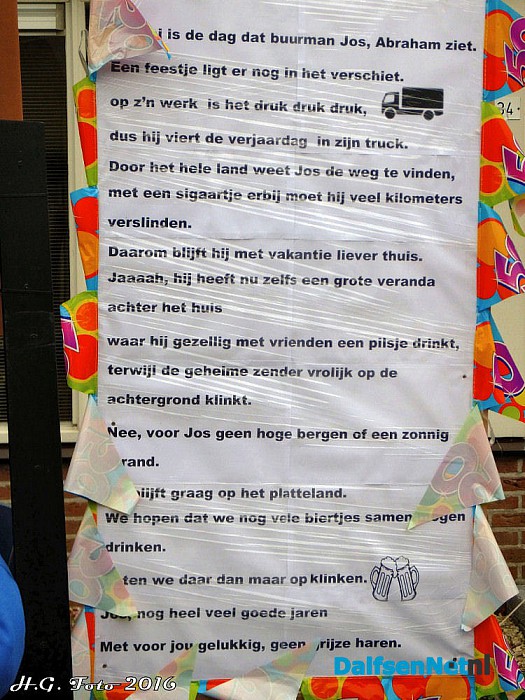 i is de dag dat buurman Jos, Abraham ziet.
Een feestje ligt er nog in het verschiet.
op z'n werk is het druk druk druk,
dus hij viert de verjaardag in zijn truck.
Door het hele land weet Jos de weg te vinden,
met een sigaartje erbij moet hij veel kilometers
verslinden.
Daarom blijft hij met vakantie liever thuis.
Jaaaah, hij heeft nu zelfs een grote veranda
achter het huis
waar hij gezellig met vrienden een pilsje drinkt,
terwijl de geheime zender vrolijk op de
achtergrond klinkt.
Nee, voor Jos geen hoge bergen of een zonnig
rand.
graag op het platteland.
We hopen dat we nog vele biertjes samen ogen
drinken.
ten we daar dan maar op klinken.
Jos, nog heel veel goede jaren
Met voor jou gelukkig, geen rijze haren.
34
50
DalfsenNet.nl
H.G. Foto 2016